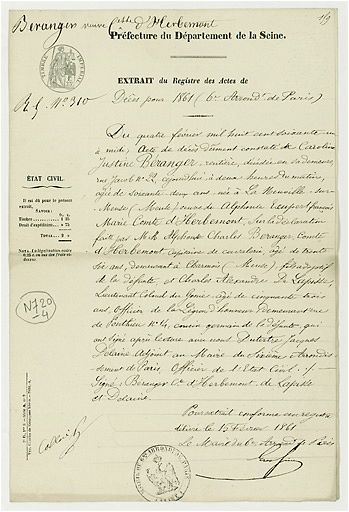 Béranger veuve Ctesse d'Herbemont
1/9
Préfecture du Département de la Seine.
EXTRAIT du Registre des Actes de
Décès pour 1861 (6e Arrondt de Paris)
R. G. No 310
ÉTAT CIVIL.
Il est dû pour le présent
extrait.
SAVOIR:
Timbre
Droit d'expédition
TOTAL
N7120
4
Du quatre février mil huit cent soixante un
à midi, Acte de décès dûment constaté de Caroline
Justine Béranger, rentière, décédée en sa demeure,
rue Jacob No 22 aujourd'hui à deux heures du matin,
âgée de soixante deux ans née à La Neuville-sur-
Meuse (Meuse) veuve de Alphonse François
Marie Comte d'Herbemont, sur la déclaration
faite par Mrs Alphonse Charles Béranger Comte
d'Herbemont, capitaine de cavalerie, âgé de trente
six ans, demeurant à Charmois (Meuse), fils
de la défunte, et Charles Alexandre De Lapisse,
Lieutenant Colonel du Génie, âgé de cinquante trois
ans, Officier de la Légion d'honneur Demeurant rue
de Ponthieu No 4, cousin germain de la défunte, qui
ont signé après lecture avec nous Jacques
Delaine Adjoint au Maire du Sixième Arrondis-
sement de Paris, Officier de l'Etat Civil. :/-
Signé: Béranger Cte d'Herbemont, de Lapisse
et Delaine.
Pour extrait conforme au registre
délivré le 15 Février 1861
Le Maire du 6e Arrondt de Paris